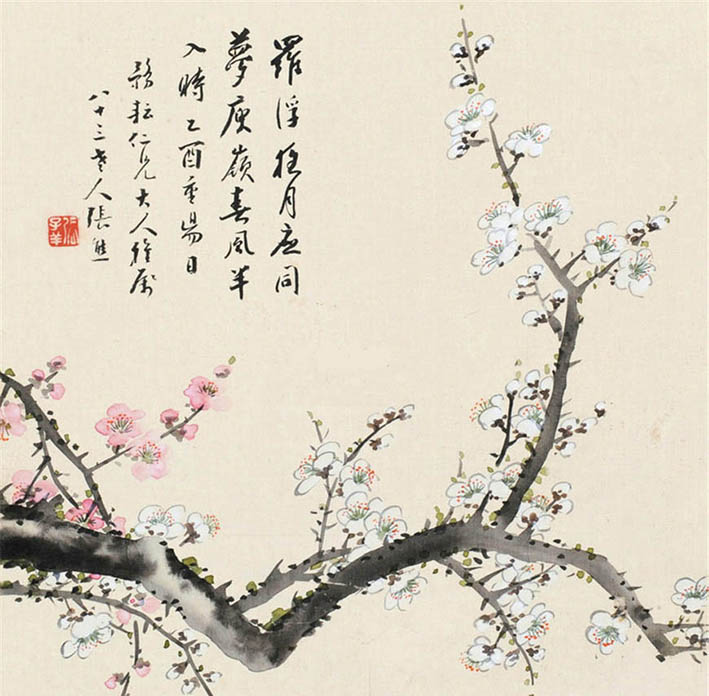 羅浮月应同
夢庾嶺春風半
入時乙酉重陽日
耘仁兄大人雅屬
八十三老人張熊